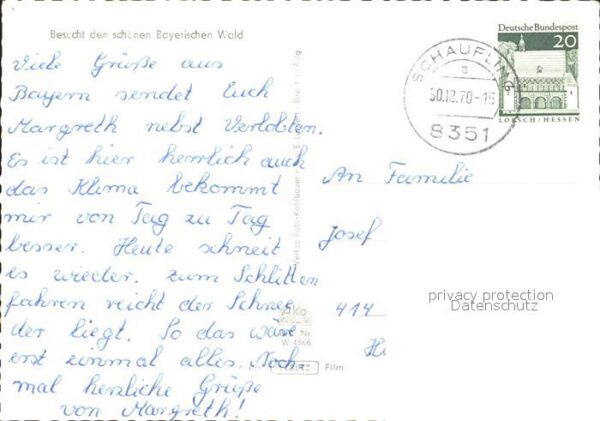 Besucht den schönen Bayerischen Wald
Viele Grüße aus
Bayern sendet Euch
Margreth nebst Verlobten.
Es ist hier herrlich auch
das Klima bekommt
mir von Tag zu Tag
besser. Heute schneit
es wieder. zum Schlitten
fahren reicht der Schnee
der liegt. So das wäre
erst einmal alles. Noch
mal herzliche Grüße
von Margreth!
Deutsche Bundespost
20
LORSCH/HESSEN
SCHAUFLING
a
30.12.70-15
8351
An Familie
Josef
414
privacy protection
Datenschutz
AKO
Nr.
W 4566
Film